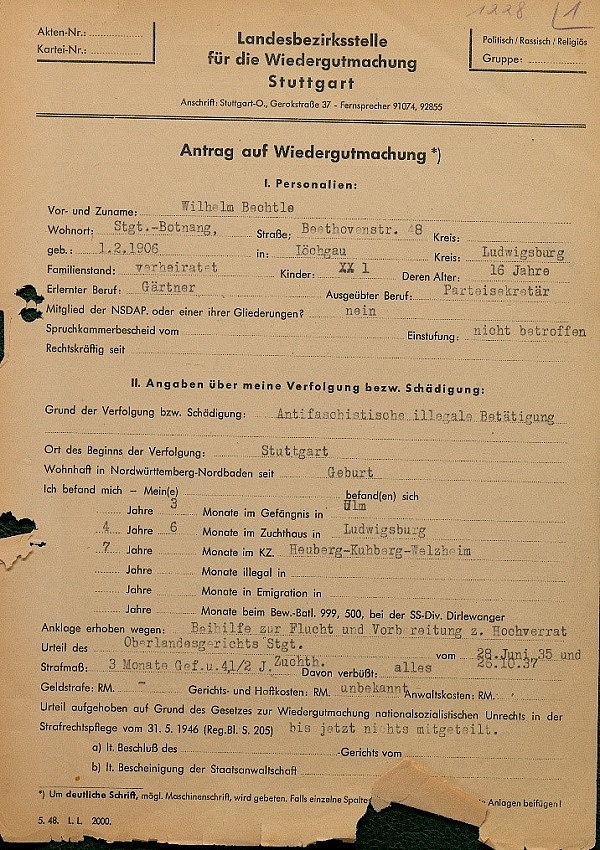 1228 1
Akten-Nr.:
Kartei-Nr.:
Landesbezirksstelle
für die Wiedergutmachung
Stuttgart
Politisch / Rassisch / Religiös
Gruppe:
Anschrift: Stuttgart-O., Gerokstraße 37 - Fernsprecher 91074, 92855
Antrag auf Wiedergutmachung *)
I. Personalien:
Vor- und Zuname: Wilhelm Bechtle
Wohnort: Stgt.-Botnang, Straße: Beethovenstr. 48 Kreis:
geb.: 1.2.1906 in: Löchgau Kreis: Ludwigsburg
Familienstand: verheiratet Kinder: XX 1 Deren Alter: 16 Jahre
Erlernter Beruf: Gärtner Ausgeübter Beruf: Parteisekretär
Mitglied der NSDAP. oder einer ihrer Gliederungen? nein
Spruchkammerbescheid vom Einstufung: nicht betroffen
Rechtskräftig seit
II. Angaben über meine Verfolgung bezw. Schädigung:
Grund der Verfolgung bzw. Schädigung: Antifaschistische illegale Betätigung
Ort des Beginns der Verfolgung: Stuttgart
Wohnhaft in Nordwürttemberg-Nordbaden seit Geburt
Ich befand mich – Mein(e) befand(en) sich
Jahre 3 Monate im Gefängnis in Ulm
4 Jahre 6 Monate im Zuchthaus in Ludwigsburg
7 Jahre Monate im KZ. Heuberg-Kuhberg-Welzheim
Jahre Monate illegal in
Jahre Monate in Emigration in
Jahre Monate beim Bew.-Batl. 999, 500, bei der SS-Div. Dirlewanger
Anklage erhoben wegen: Beihilfe zur Flucht und Vorb reitung z. Hochverrat
Urteil des Oberlandesgerichts Stgt. vom 28.Juni 35 und
Strafmaß: 3 Monate Gef.u.41/2 J.Zuchth. Davon verbüßt: alles 26.10.37
Geldstrafe: RM. – Gerichts- und Haftkosten: RM. unbekannt Anwaltskosten: RM.
Urteil aufgehoben auf Grund des Gesetzes zur Wiedergutmachung nationalsozialistischen Unrechts in der
Strafrechtspflege vom 31. 5. 1946 (Reg.Bl. S. 205) bis jetzt nichts mitgeteilt.
a) lt. Beschluß des -Gerichts vom
b) lt. Bescheinigung der Staatsanwaltschaft
*) Um deutliche Schrift, mögl. Maschinenschrift, wird gebeten. Falls einzelne Anlagen beifügen!
5. 48. L. L. 2000.